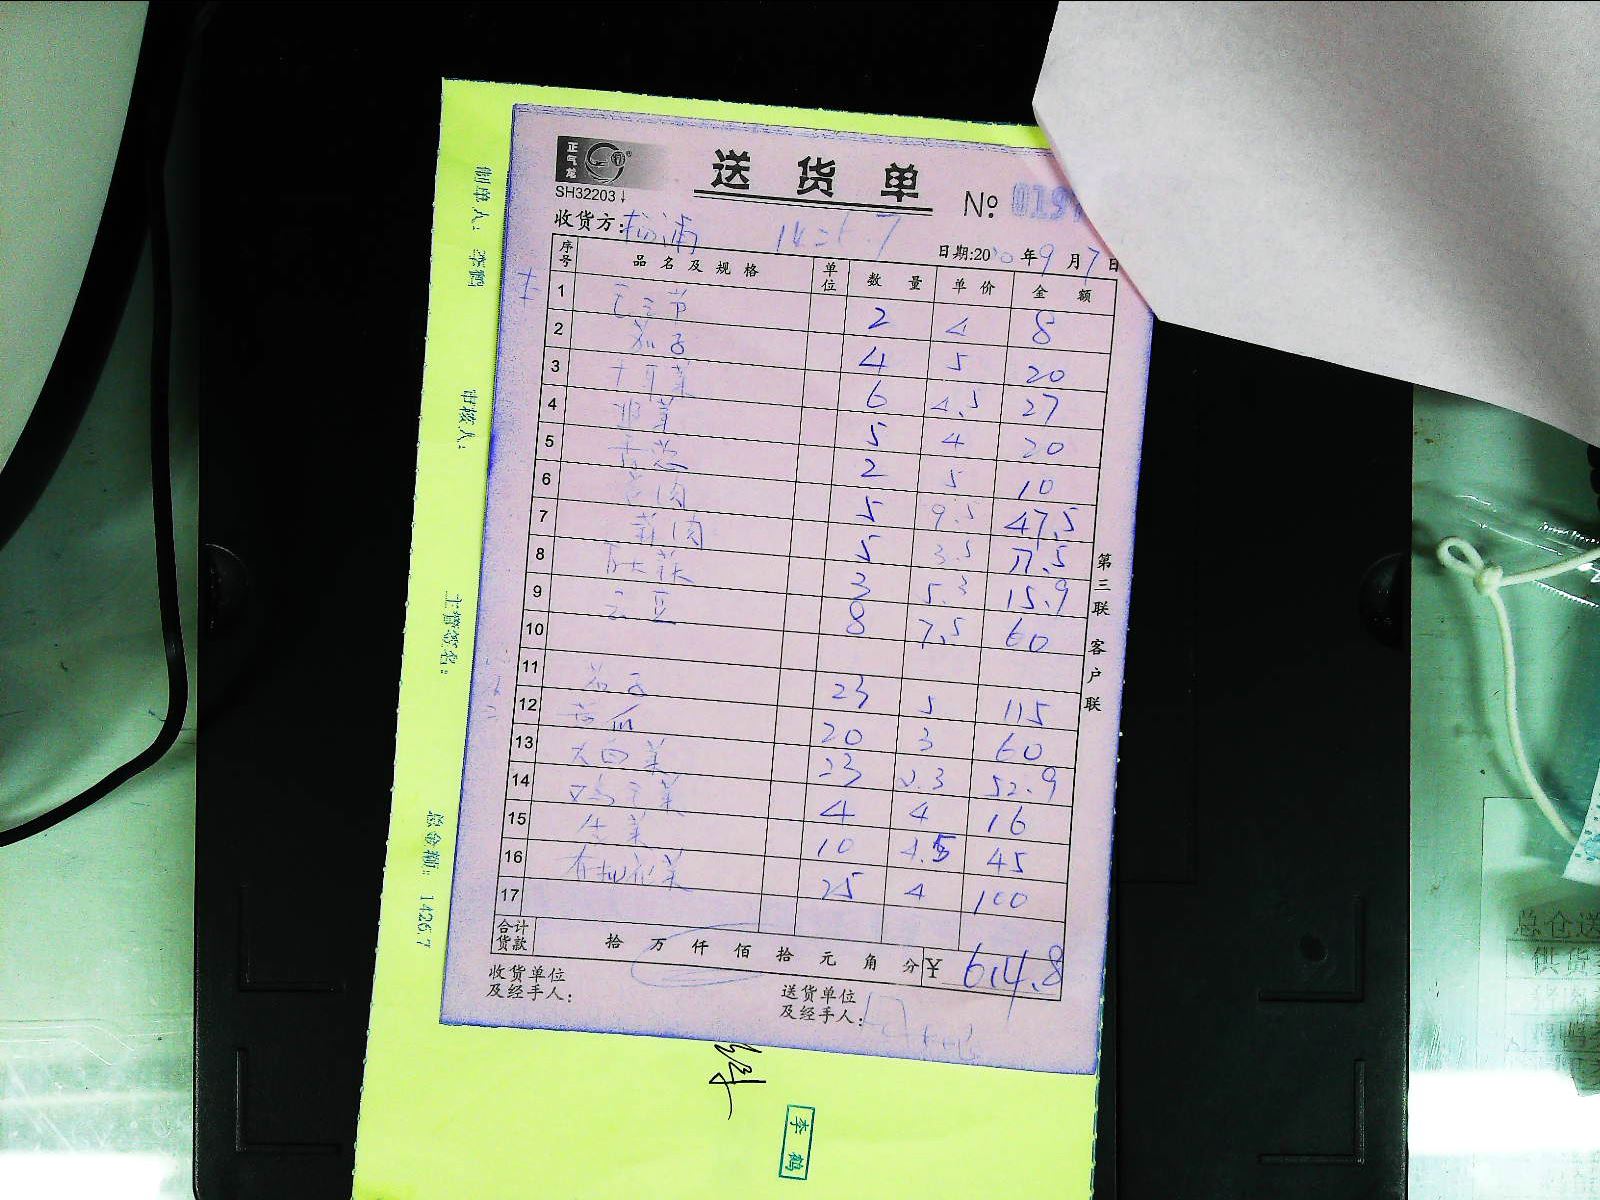 正气龙
送货单
SH32203
№ 019
收货方: 松浦 1426.7 日期:2020年9月7日
序号 品名及规格 单位 数量 单价 金额
1 2 4 8
2 茄子 4 5 20
3 6 4.5 27
4 5 4 20
5 香葱 2 5 10
6 5 9.5 47.5
7 5 3.5 17.5
8 3 5.3 15.9
9 云豆 8 7.5 60
10
11 茄子 23 5 115
12 苦瓜 20 3 60
13 大白菜 23 2.3 52.9
14 4 4 16
15 生菜 10 4.5 45
16 有机花菜 25 4 100
17
合计货款 拾 万 仟 佰 拾 元 角 分 ¥ 614.8
收货单位及经手人:
送货单位及经手人:
第三联 客户联
制单人: 李鹤
审核人:
主管签名:
总金额: 1426.7
李鹤
总仓送
供货